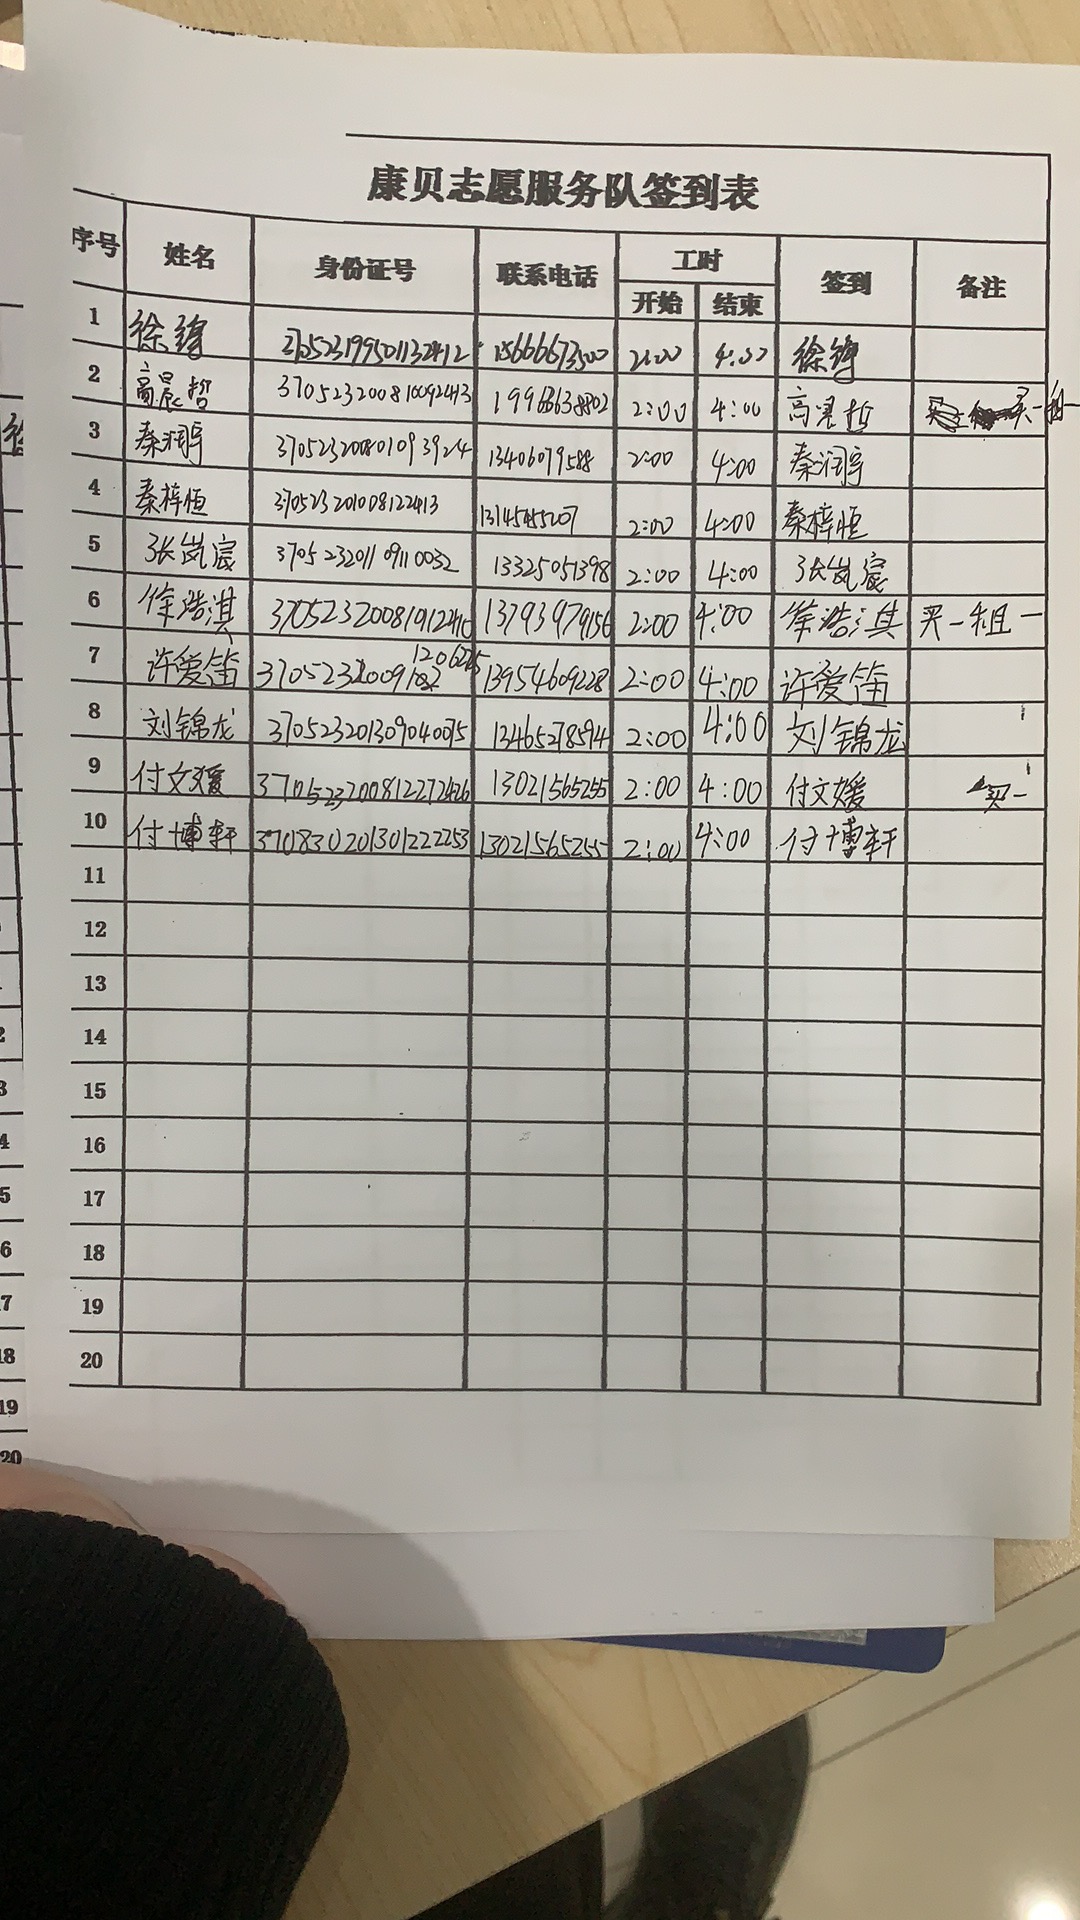 康贝志愿服务队签到表
序号 姓名 身份证号 联系电话 工时 签到 备注
开始 结束
1 15666673500
2 高晨哲 370523200810092413 2:00 4:00 高晨哲
3 13406079588 2:00 4:00
4 秦梓恒 370523201008122413 2:00 4:00 秦梓恒
5 张岚宸 370523201109110032 13325051398 2:00 4:00 张岚宸
6 徐浩淇 13793979156 2:00 4:00 徐浩淇 买一组一
7 许爱笛 13954609228 2:00 4:00 许爱笛
8 刘锦龙 370523201309040075 13465278594 2:00 4:00 刘锦龙
9 付文媛 370523200812272426 13021565255 2:00 4:00 付文媛 买一
10 付博轩 370830201301222253 13021565255 2:00 4:00 付博轩
11
12
13
14
15
16
17
18
19
20